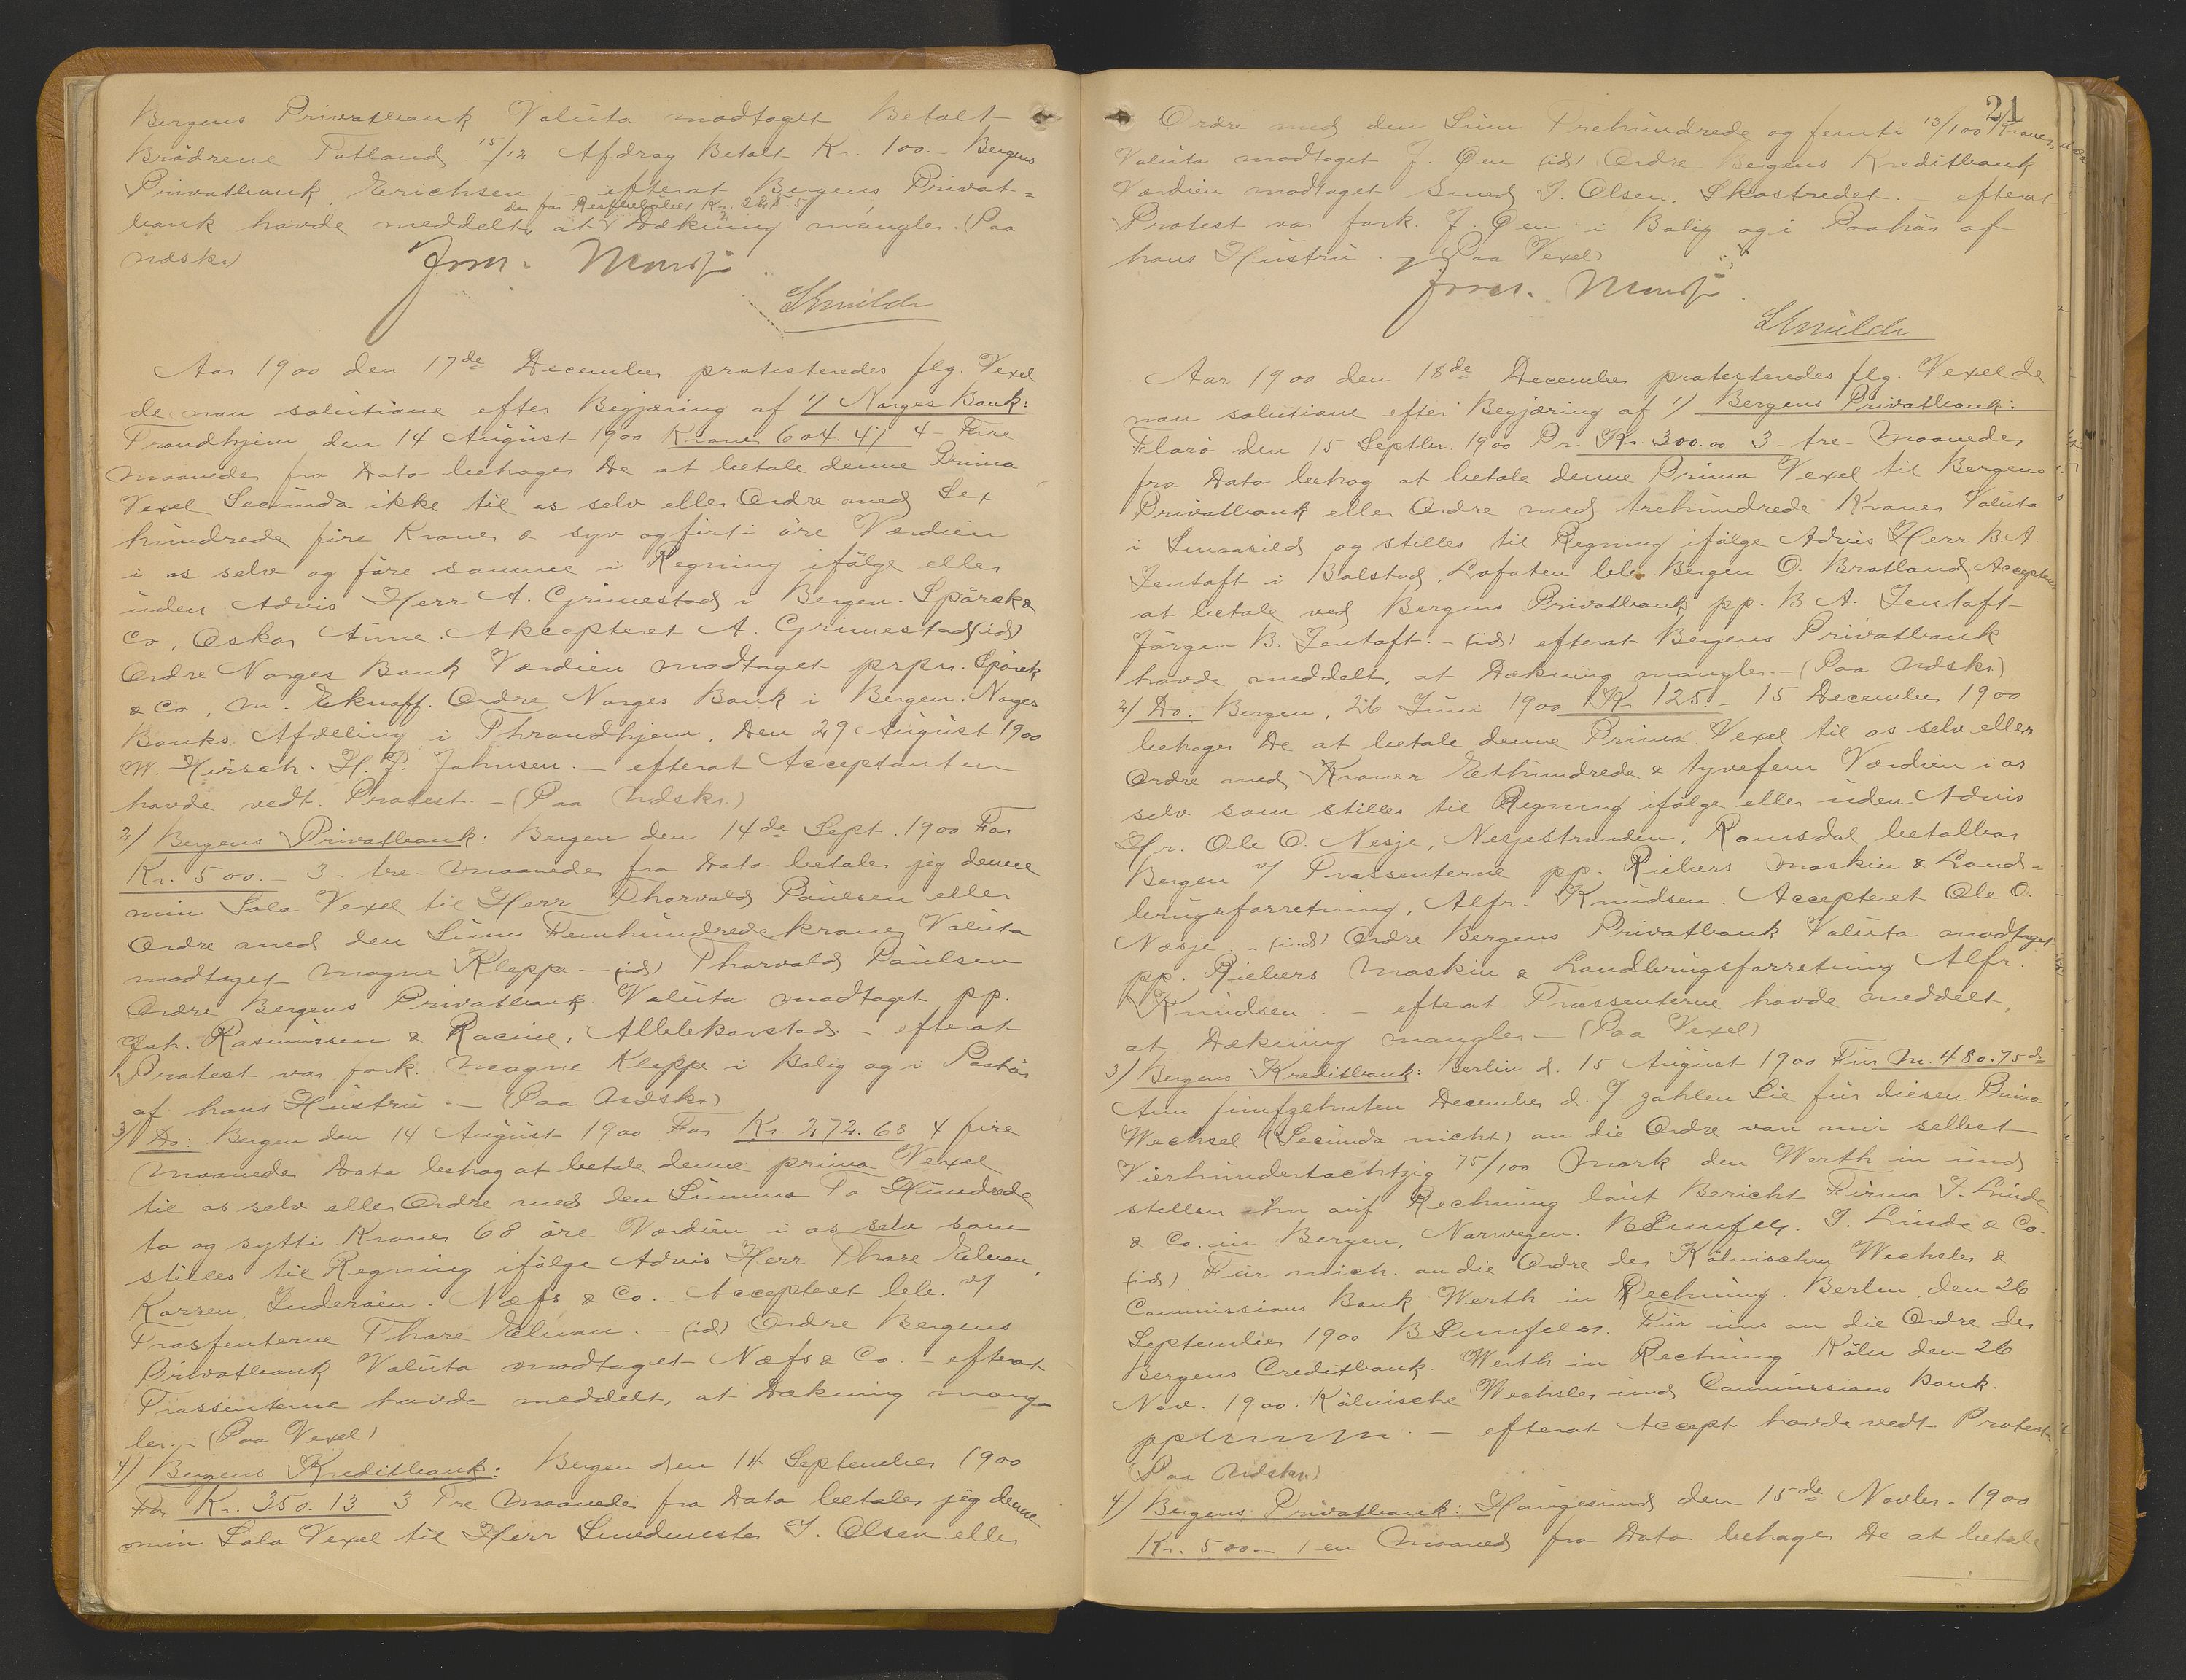 Bergens Privatbank Valuta modtaget Betalt
Brödrene Totland. 15/12 Afdrag Betalt Kr. 100.- Bergens
Privatbank, Erichsen, - efterat Bergens Privat=
der for Restbeløbet Kr.
bank havde meddelt, at Dækning mangler. (Paa
Udskr)
Aar 1900 den 17de December protesteredes flg. Vexel
de non solutione efter Begjæring af 1/ Norges Bank:
Trondhjem den 14 August 1900 Kroner 604.47 4 - Fire
maaneder fra Dato behager De at betale denne Prima
Vexel Secunda ikke til os selv eller Ordre med Sex
hundrede fire Kroner & syv og firti öre Værdien
i os selv og före samme i Regning ifölge eller
uden Advis Herr A. Grimestad i Bergen. Spörck &
Co, Oskar Aune. Akcepteret A. Grimestad (id)
Ordre Norges Bank Værdien modtaget prpr. Spörck
& Co, M. Eknoff. Ordre Norges Bank i Bergen. Norges
Banks Afdeling i Throndhjem. Den 29 August 1900
W. Hirsch. H. P. Johnsen. - efterat Acceptanten
havde vedt. Protest. - (Paa Udskr.)
2/ Bergens Privatbank: Bergen den 14de Sept. 1900 For
Kr. 500.- 3 - tre - Maaneder fra Dato betaler jeg denne
min Sola Vexel til Herr Thorvald Paulsen eller
Ordre med den Sum Femhundrede kroner Valuta
modtaget Magne Kleppe - (id) Thorvald Paulsen
Ordre Bergens Privatbank Valuta modtaget pp.
Joh. Rasmussen & Racine, - efterat
Protest var fork. Magne Kleppe i Bolig og i Paahör
af hans Hustru. - (Paa Udskr.)
3/ Do: Bergen den 14 August 1900 For Kr. 272.68 4 fire
Maaneder Dato behag at betale denne prima Vexel
til os selv eller Ordre med den Summa To Hundrede
to og sytti Kroner 68 öre Værdien i os selv som
stilles til Regning ifölge Advis Herr Thore Elnan,
Korsen Inderöen. Næfs & Co. Accepteret bet. v/
Trasfenterne Thore Elnan. - (id) Ordre Bergens
Privatbank Valuta modtaget Næfs & Co. - efterat
Trassenterne havde meddelt, at Dækning mang=
ler. - (Paa Vexel)
4) Bergens Kreditbank: Bergen den 14 September 1900
For Kr. 350.13 3 Tre Maaneder fra Dato betaler jeg denne
min Sola Vexel til Herr Smedmester J. Olsen eller
21
Ordre med den Sum Trehundrede og femti 13/100 Kroner
Valuta modtaget J. Øen (id) Ordre Bergens Kreditbank
Værdien modtaget Smed J. Olsen, Skostredet. - efterat
Protest var fork. J. Øen i Bolig og i Paahör af
hans Hustru. - (Paa Vexel)
Aar 1900 den 18de December protesteredes flg. Vexel de
non solutione efter Begjæring af 1/ Bergens Privatbank:
Florö den 15 Septbr. 1900 Pr. Kr. 300.00 3 - tre - Maaneder
fra Dato behag at betale denne Prima Vexel til Bergens
Privatbank eller Ordre med trehundrede Kroner Valuta
i Smaasild og stilles til Regning ifölge Advis Herr B. A.
Jentoft i Balstad, Lofoten bet. Bergen. O. Bratland Accepteres
at betale ved Bergens Privatbank pp. B. A. Jentoft
Jörgen B. Jentoft. - (id) efterat Bergens Privatbank
havde meddelt, at Dækning mangler. - (Paa Udskr)
2/ Do: Bergen, 26 Juni 1900 Kr. 125.- 15 December 1900
behager De at betale denne Prima Vexel til os selv eller
Ordre med Kroner Ethundrede & tyvefem Værdien i os
selv som stilles til Regning ifölge eller uden Advis
Hr. Ole O. Nesje, Nesjestranden, Romsdal betalbar
Bergen v/ Trassenterne pp. Riebers Maskin & Land=
brugsforretning, Alfr. Knudsen. Accepteret Ole O.
Næsje. - (id) Ordre Bergens Privatbank Valuta modtaget
pp. Riebers Maskin & Landbrugsforretning Alfr.
Knudsen. - efterat Trassenterne havde meddelt,
at Dækning mangler - (Paa Vexel)
3) Bergens Kreditbank: Berlin d. 15 August 1900 Für M. 480.75 d
Am fünfzehnten December d. J. zahlen Sie für diesen Prima
Wechsel (Secunda nicht) an die Ordre von mir selbst
Vierhundertachtzig 75/100 Mark den Werth in und
stellen ihn auf Rechnung laut Bericht Firma J. Linde
& Co. in Bergen, Norwegen. J. Linde & Co.
(id) Für mich an die Ordre der Kölnischen Wechsler &
Commissions Bank Werth in Rechnung. Berlin den 26
September 1900 Für uns an die Ordre der
Bergens Creditbank. Werth in Rechnung Köln den 26
Nov. 1900. Kölnische Wechsler und Commissions Bank.
pp - efterat Accept havde vedt. Protest.
(Paa Udskr.)
4) Bergens Privatbank: Haugesund den 15de Novbr. 1900
Kr. 500.- 1 en Maaned fra Dato behager De at betale